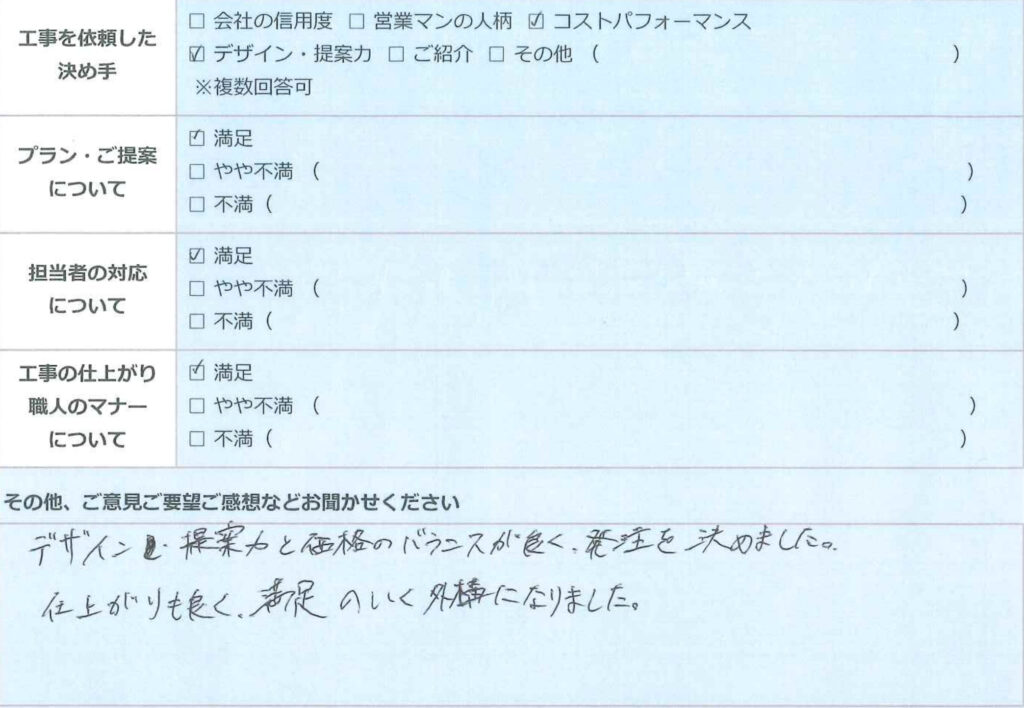 工事を依頼した
決め手
☐ 会社の信用度 ☐ 営業マンの人柄 ☑ コストパフォーマンス
☑ デザイン・提案力 ☐ ご紹介 ☐ その他 ( )
※複数回答可
プラン・ご提案
について
☑ 満足
☐ やや不満 ( )
☐ 不満 ( )
担当者の対応
について
☑ 満足
☐ やや不満 ( )
☐ 不満 ( )
工事の仕上がり
職人のマナー
について
☑ 満足
☐ やや不満 ( )
☐ 不満 ( )
その他、ご意見ご要望ご感想などお聞かせください
デザイン・提案力と価格のバランスが良く、発注を決めました。
仕上がりも良く、満足のいく外構になりました。